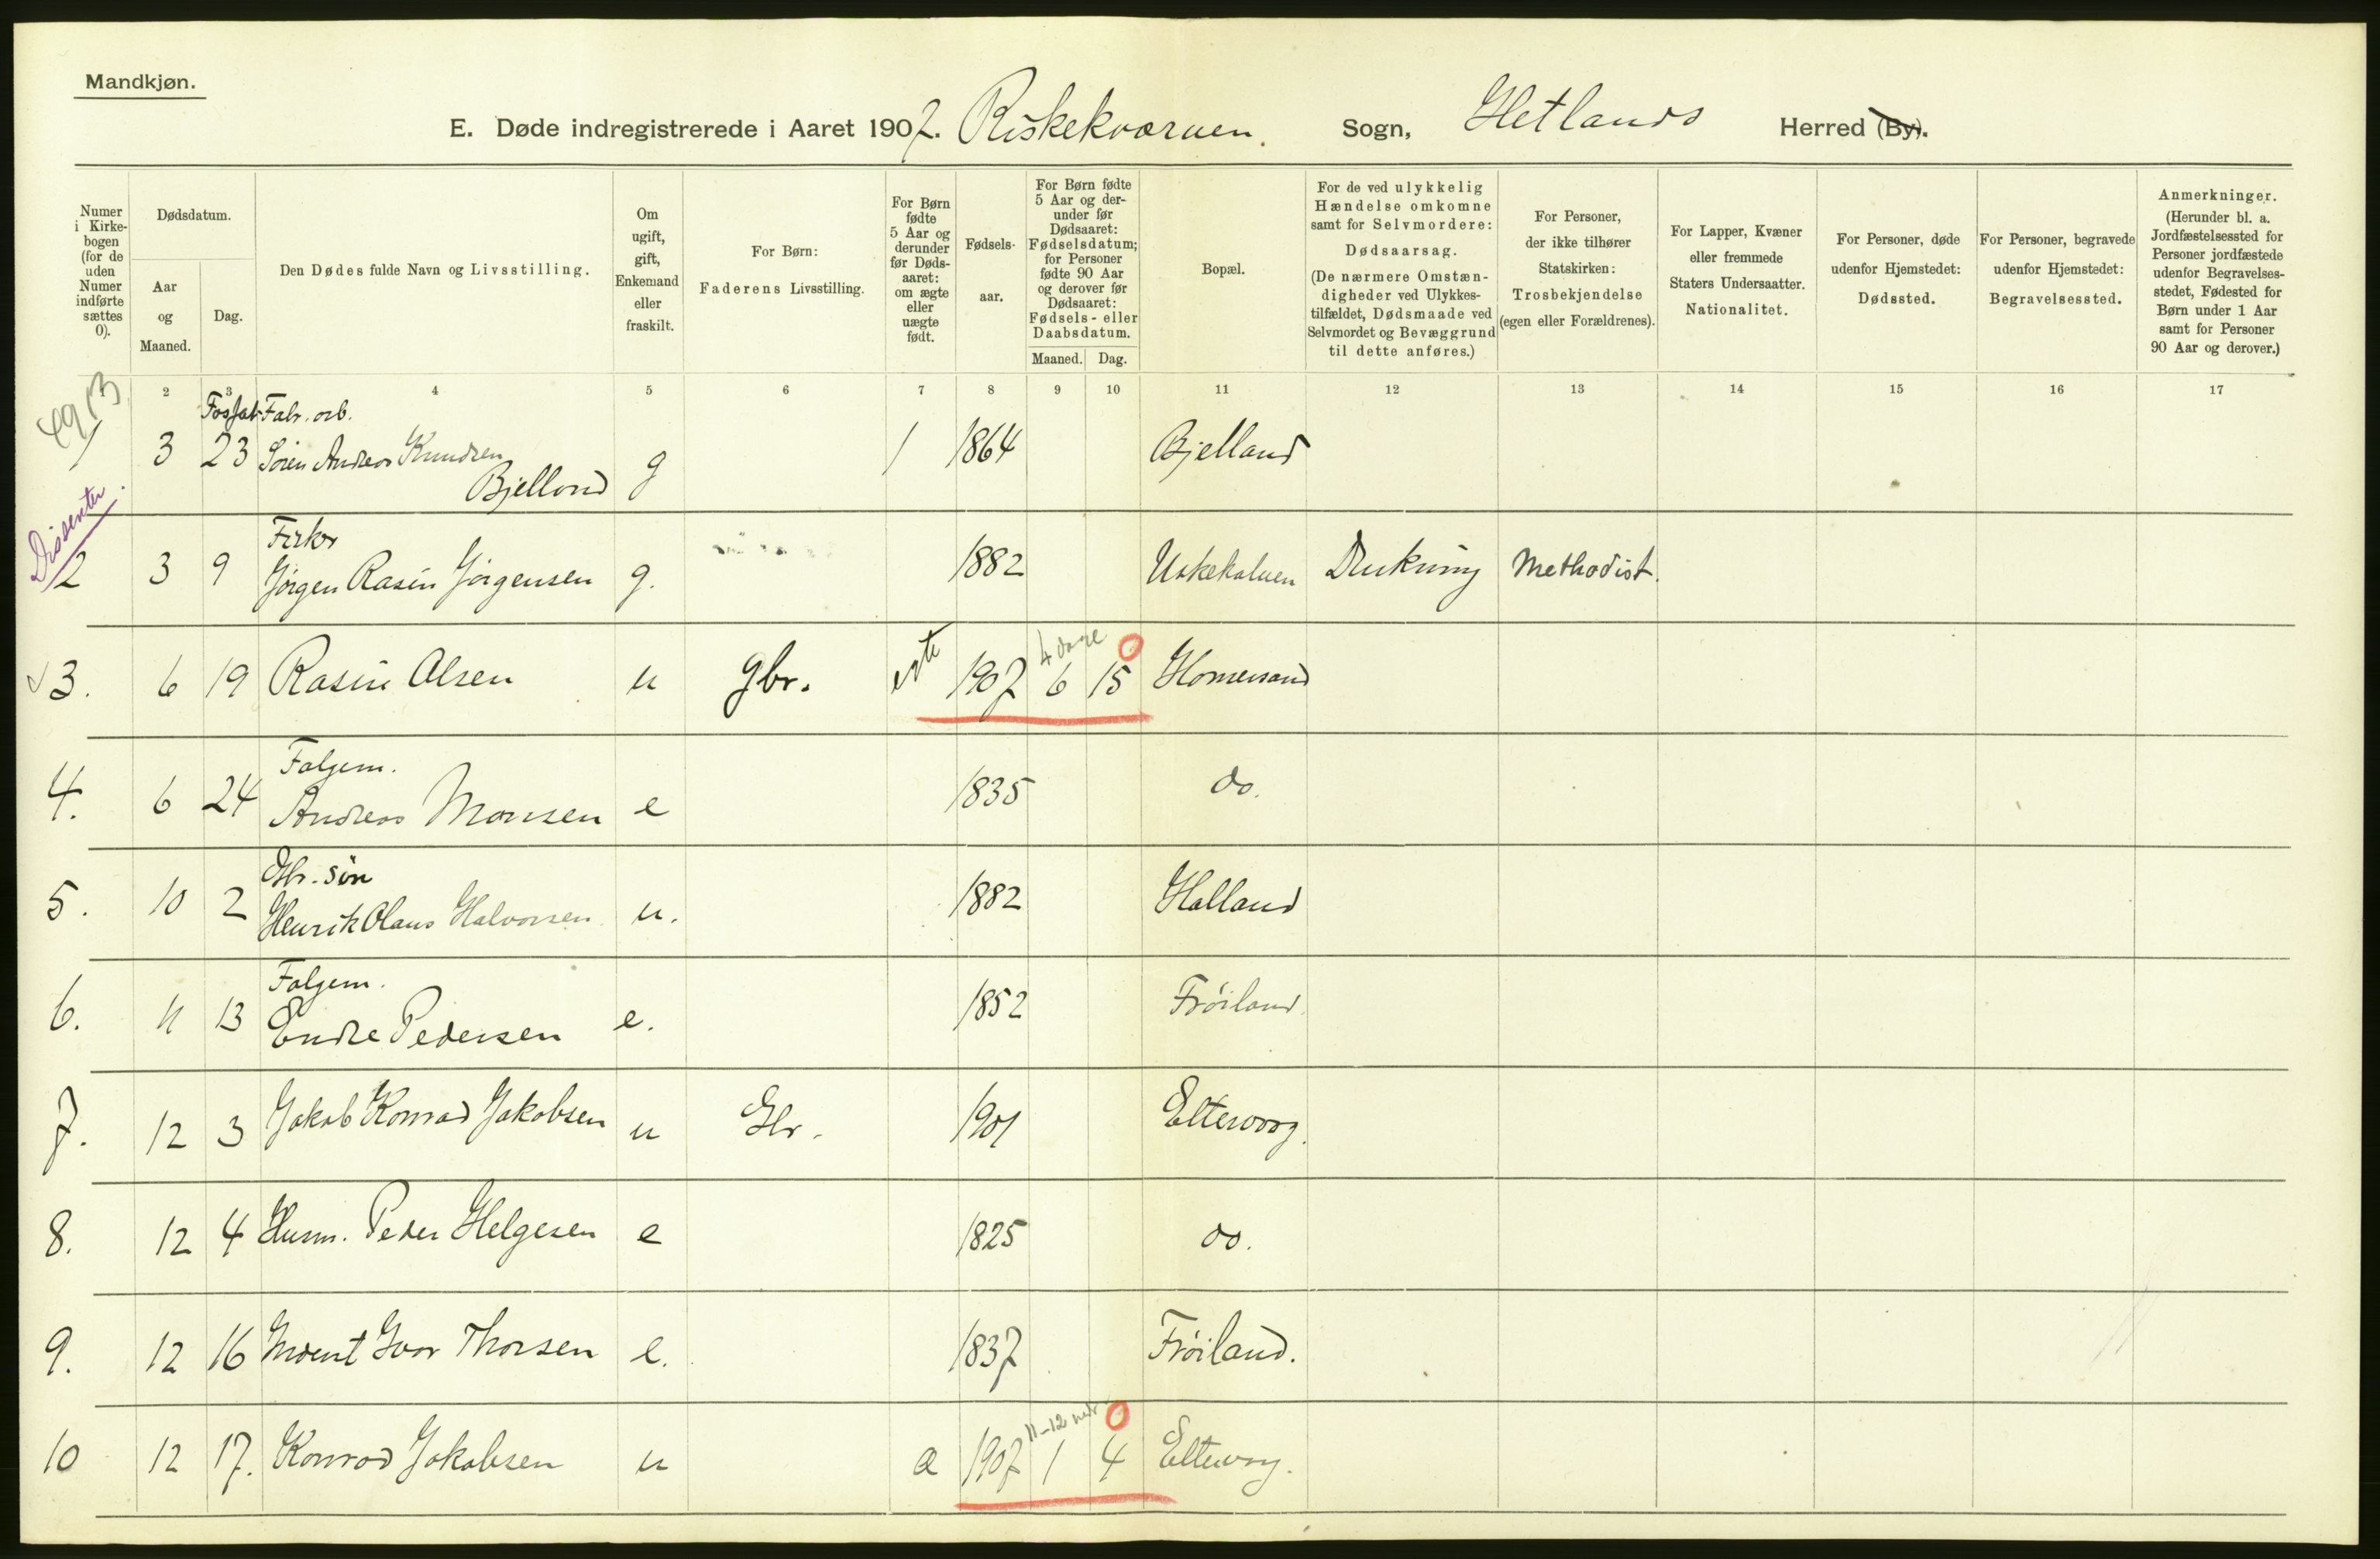 Mandkjøn.
E. Døde indregistrerede i Aaret 1907. Riskekværnen. Sogn, Hetlands Herred (By).
Numer i Kirke-bogen (for de uden Numer indførte sættes 0).
Dødsdatum.
Aar og Maaned.
Dag.
Den Dødes fulde Navn og Livsstilling.
Om ugift, gift, Enkemand eller fraskilt.
For Børn: Faderens Livsstilling.
For Børn fødte 5 Aar og derunder før Døds-aaret: om ægte eller uægte født.
Fødsels-aar.
For Børn fødte 5 Aar og der-under før Dødsaaret: Fødselsdatum; for Personer fødte 90 Aar og derover før Dødsaaret: Fødsels- eller Daabsdatum.
Maaned. Dag.
Bopæl.
For de ved ulykkelig Hændelse omkomne samt for Selvmordere: Dødsaarsag. (De nærmere Omstæn-digheder ved Ulykkes-tilfældet, Dødsmaade ved Selvmordet og Bevæggrund til dette anføres.)
For Personer, der ikke tilhører Statskirken: Trosbekjendelse (egen eller Forældrenes).
For Lapper, Kvæner eller fremmede Staters Undersaatter. Nationalitet.
For Personer, døde udenfor Hjemstedet: Dødssted.
For Personer, begravede udenfor Hjemstedet: Begravelsessted.
Anmerkninger. (Herunder bl. a. Jordfæstelsessted for Personer jordfæstede udenfor Begravelses-stedet, Fødested for Børn under 1 Aar samt for Personer 90 Aar og derover.)
2 3 4 5 6 7 8 9 10 11 12 13 14 15 16 17
Fosfat Fabr. arb.
1 3 23 Søren Andreas Knudsen g / 1864 Bjelland
Bjelland
Dissenter.
Fisker
2 3 9 Jørgen Rasin Jørgensen g. 1882 Uskekalven Drukning Methodist.
4 dage
3. 6 19 Rasin Olsen u gbr. egte 1907 6 15 Homersand
Folgem.
4. 6 24 Andreas Monsen e 1835 do.
Gbr. søn
5. 10 2 Henrik Olaus Halvorsen u. 1882 Halland
Folgem.
6. 11 13 Endre Pedersen e. 1852 Frøiland.
7. 12 3 Jakob Konrad Jakobsen u Gbr. 1901 Eltervaag.
8. 12 4 Husm. Peder Helgesen e 1825 do.
9. 12 16 Ivar Thorsen e. 1837 Frøiland.
11-12 mdr
10 12 17. Konrad Jakobsen u a 1907 1 4 Eltervag.